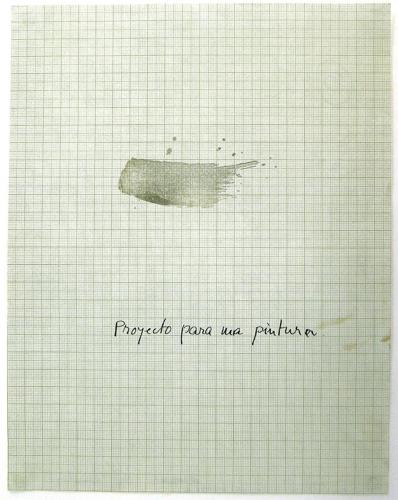 Proyecto para una pintura